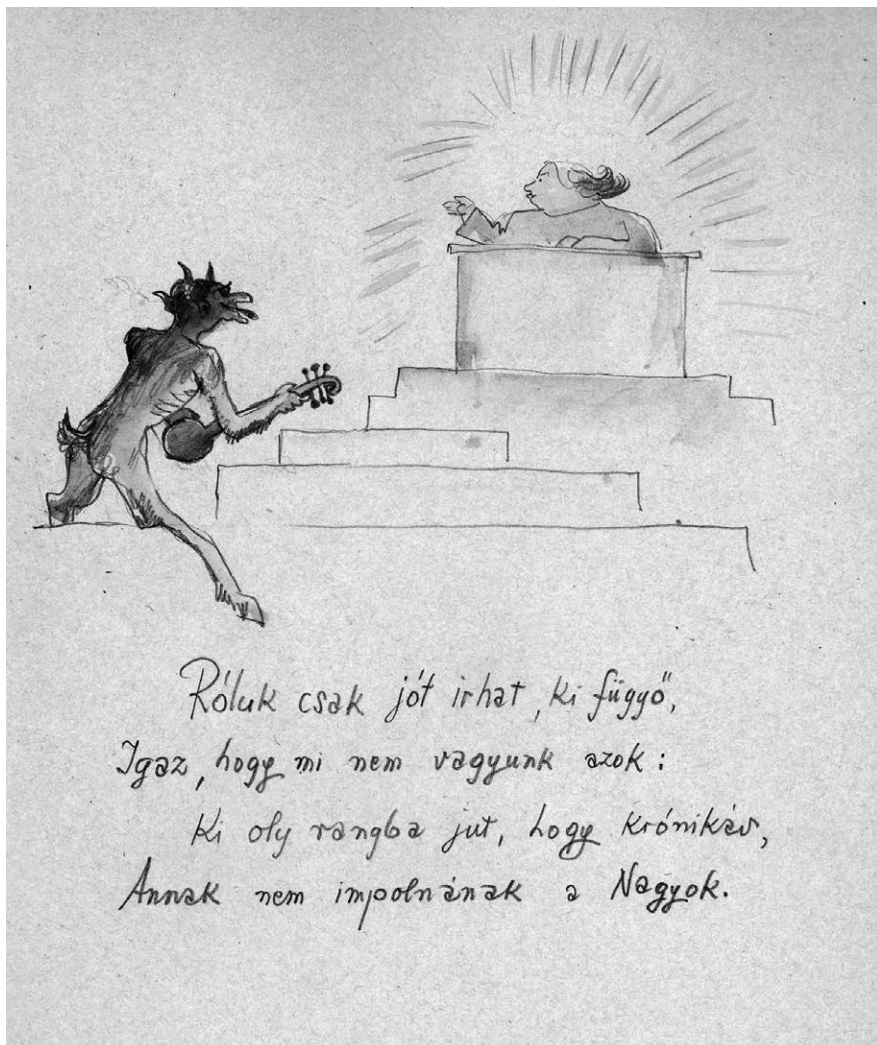 Róluk csak jót irhat, ki függő,
Igaz, hogy mi nem vagyunk azok:
Ki oly rangba jut, hogy krónikás,
Annak nem impolnának a Nagyok.